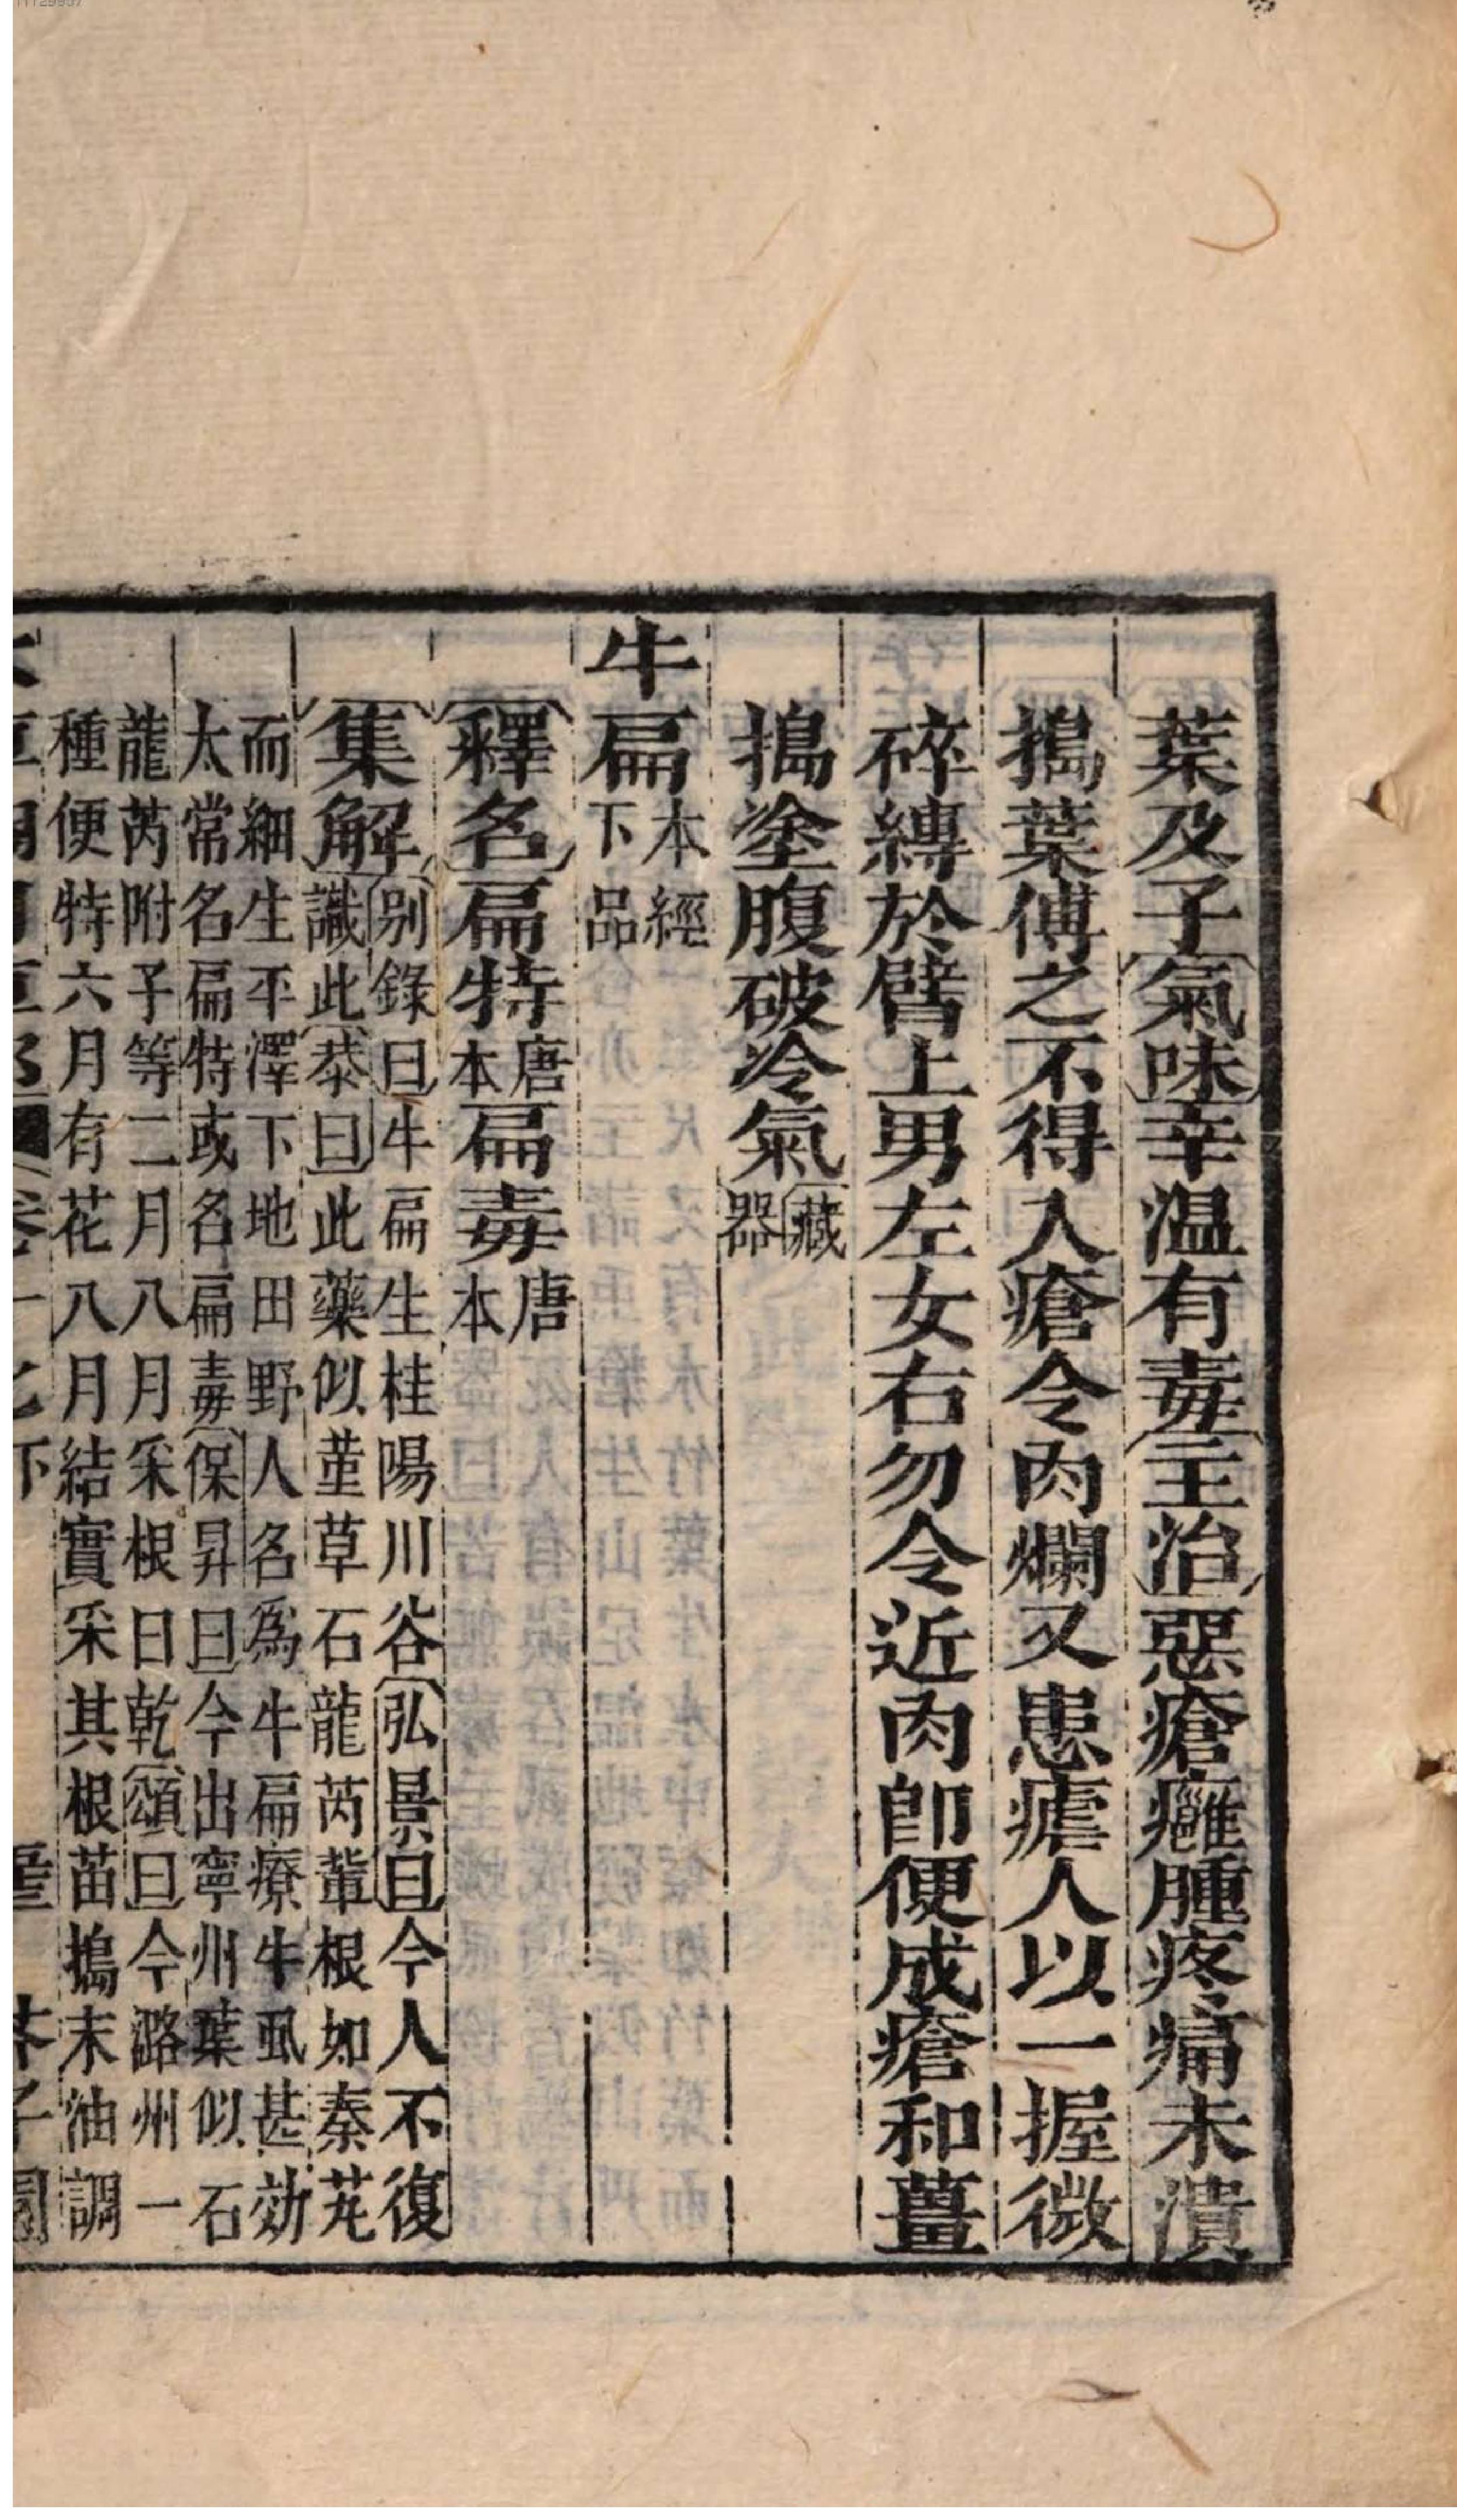 葉及子氣味辛温有毒主治惡瘡癰腫疼痛未潰
搗葉傅之不得入瘡令肉爛又患瘧人以一握微
碎縛於臂上男左女右勿令近肉卽便成瘡和薑
搗塗腹破冷氣藏器
牛扁本經下品
釋名扁特唐本扁毒唐本
集解别錄曰牛扁生桂陽川谷弘景曰今人不復
識此恭曰此藥似菫草石龍芮輩根如秦艽
而細生平澤下地田野人名爲牛扁療牛虱甚効
太常名扁特或名扁毒保昇曰今出寧州葉似石
龍芮附子等二月八月采根日乾頌曰今潞州一
種便特六月有花八月結實采其根苗搗末油調